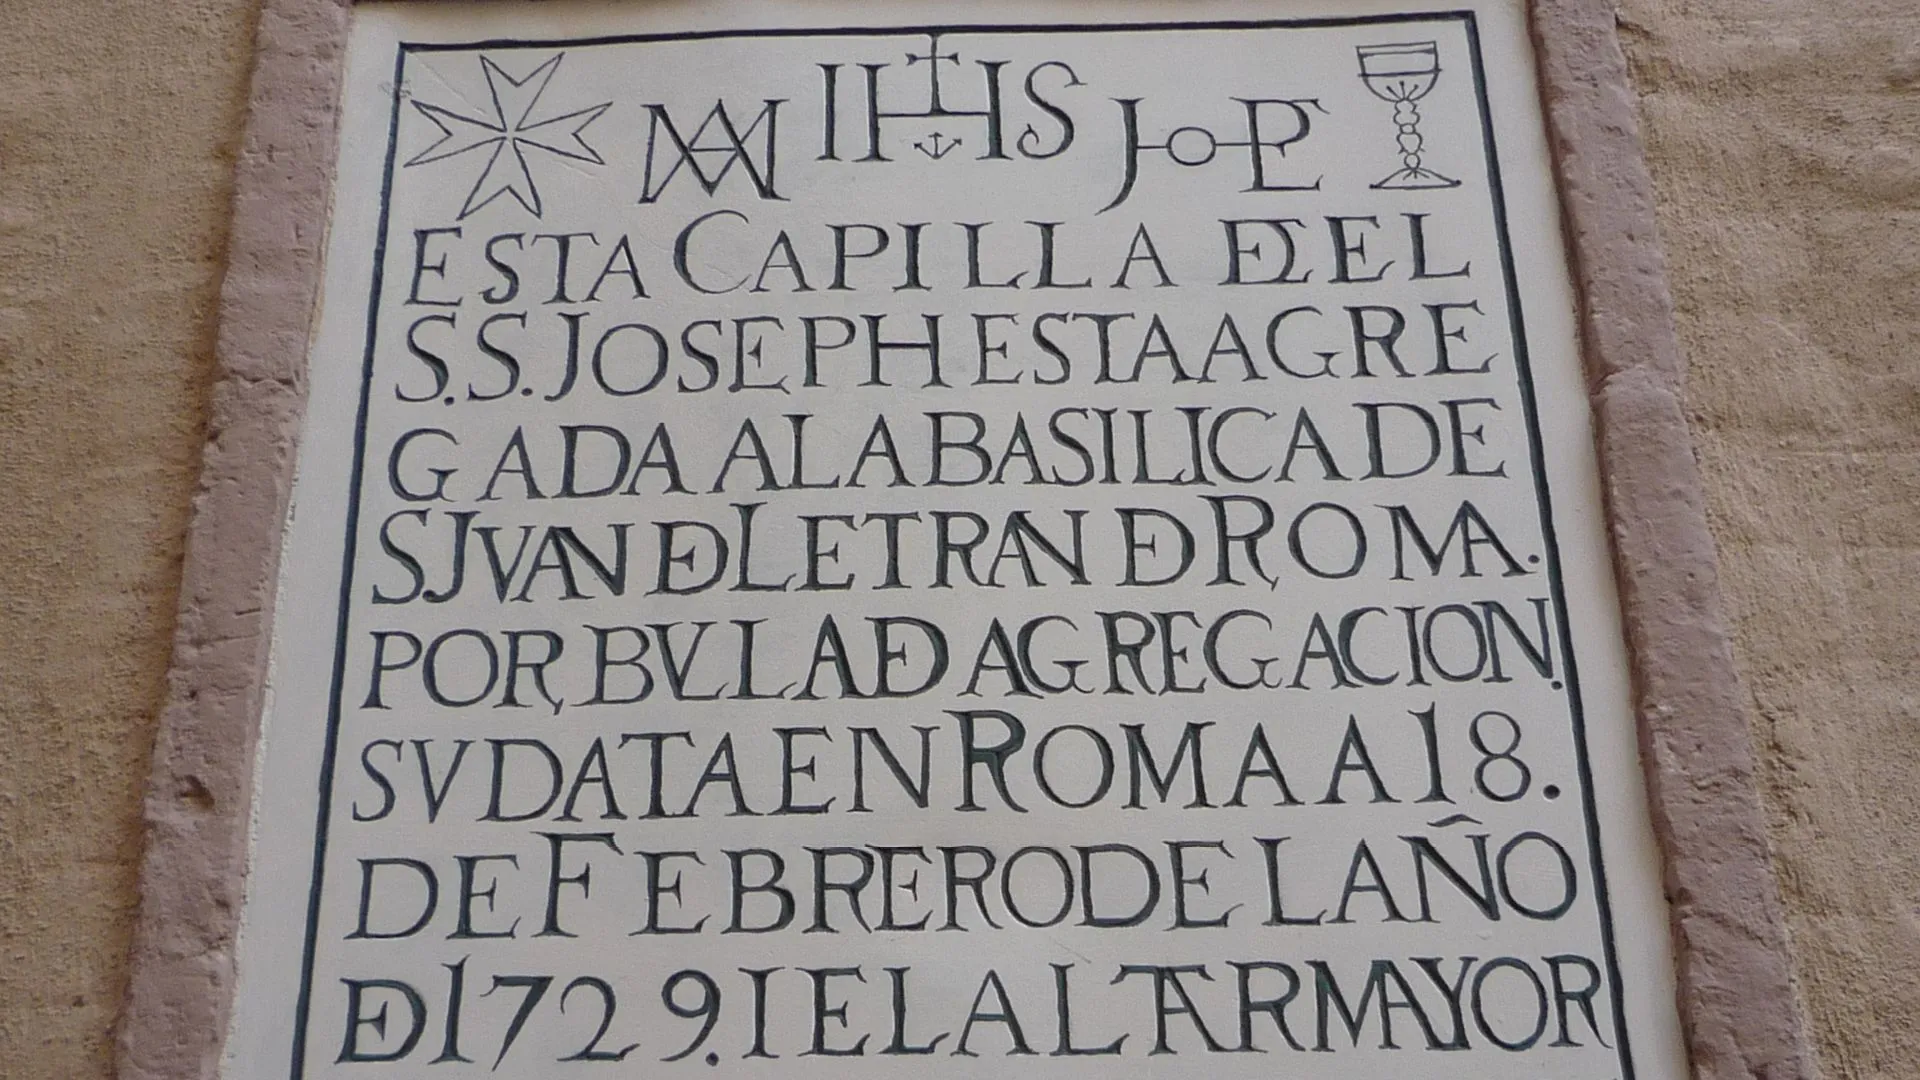 MA IHS JOPE
ESTA CAPILLA DE EL
S.S. JOSEPH ESTA AGRE
GADA A LA BASILICA DE
S. JVAN DE LETRAN DE ROMA.
POR BVLA DE AGREGACION.
SV DATA EN ROMA A 18.
DE FEBRERO DE L AÑO
DE 1729. I EL ALTAR MAYOR